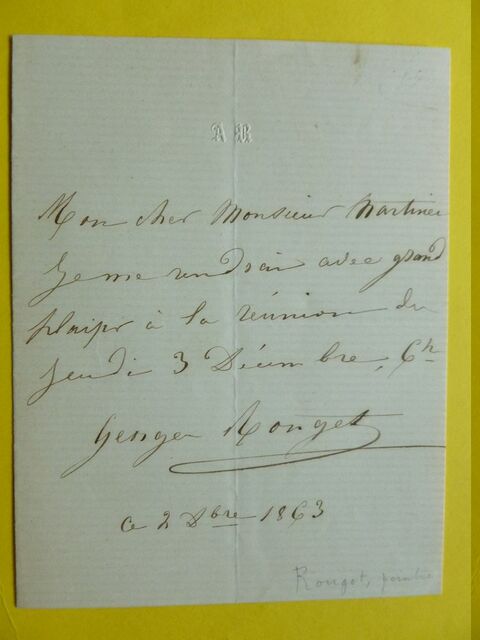 A R
Mon cher Monsieur Martinet
Je me rendrai avec grand
plaisir à la réunion du
Jeudi 3 Décembre, 6h
Georges Rouget
ce 2 Dbre 1863
Rouget, peintre